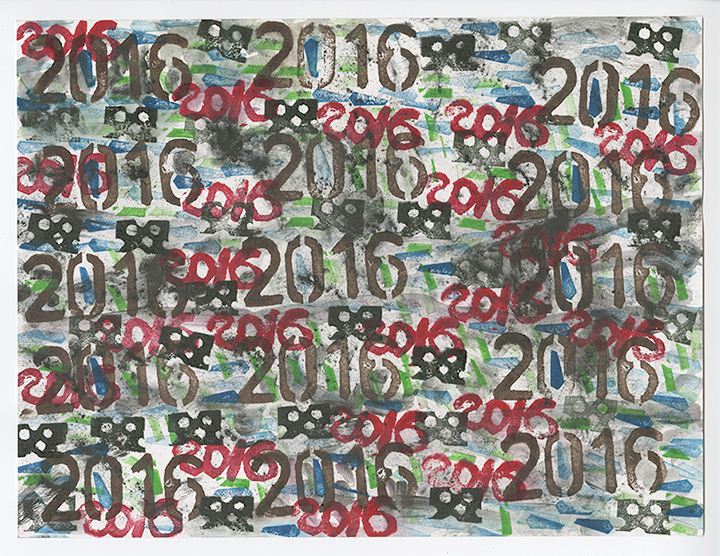 2016
2016 2016 2016
2016 2016 2016 2016
2016 2016 2016
2016 2016 2016
2016 2016
2016 2016 2016
2016
2016 2016 2016 2016
2016 2016 2016
2016 2016
2016
2016 2016 2016
2016 2016
2016 2016